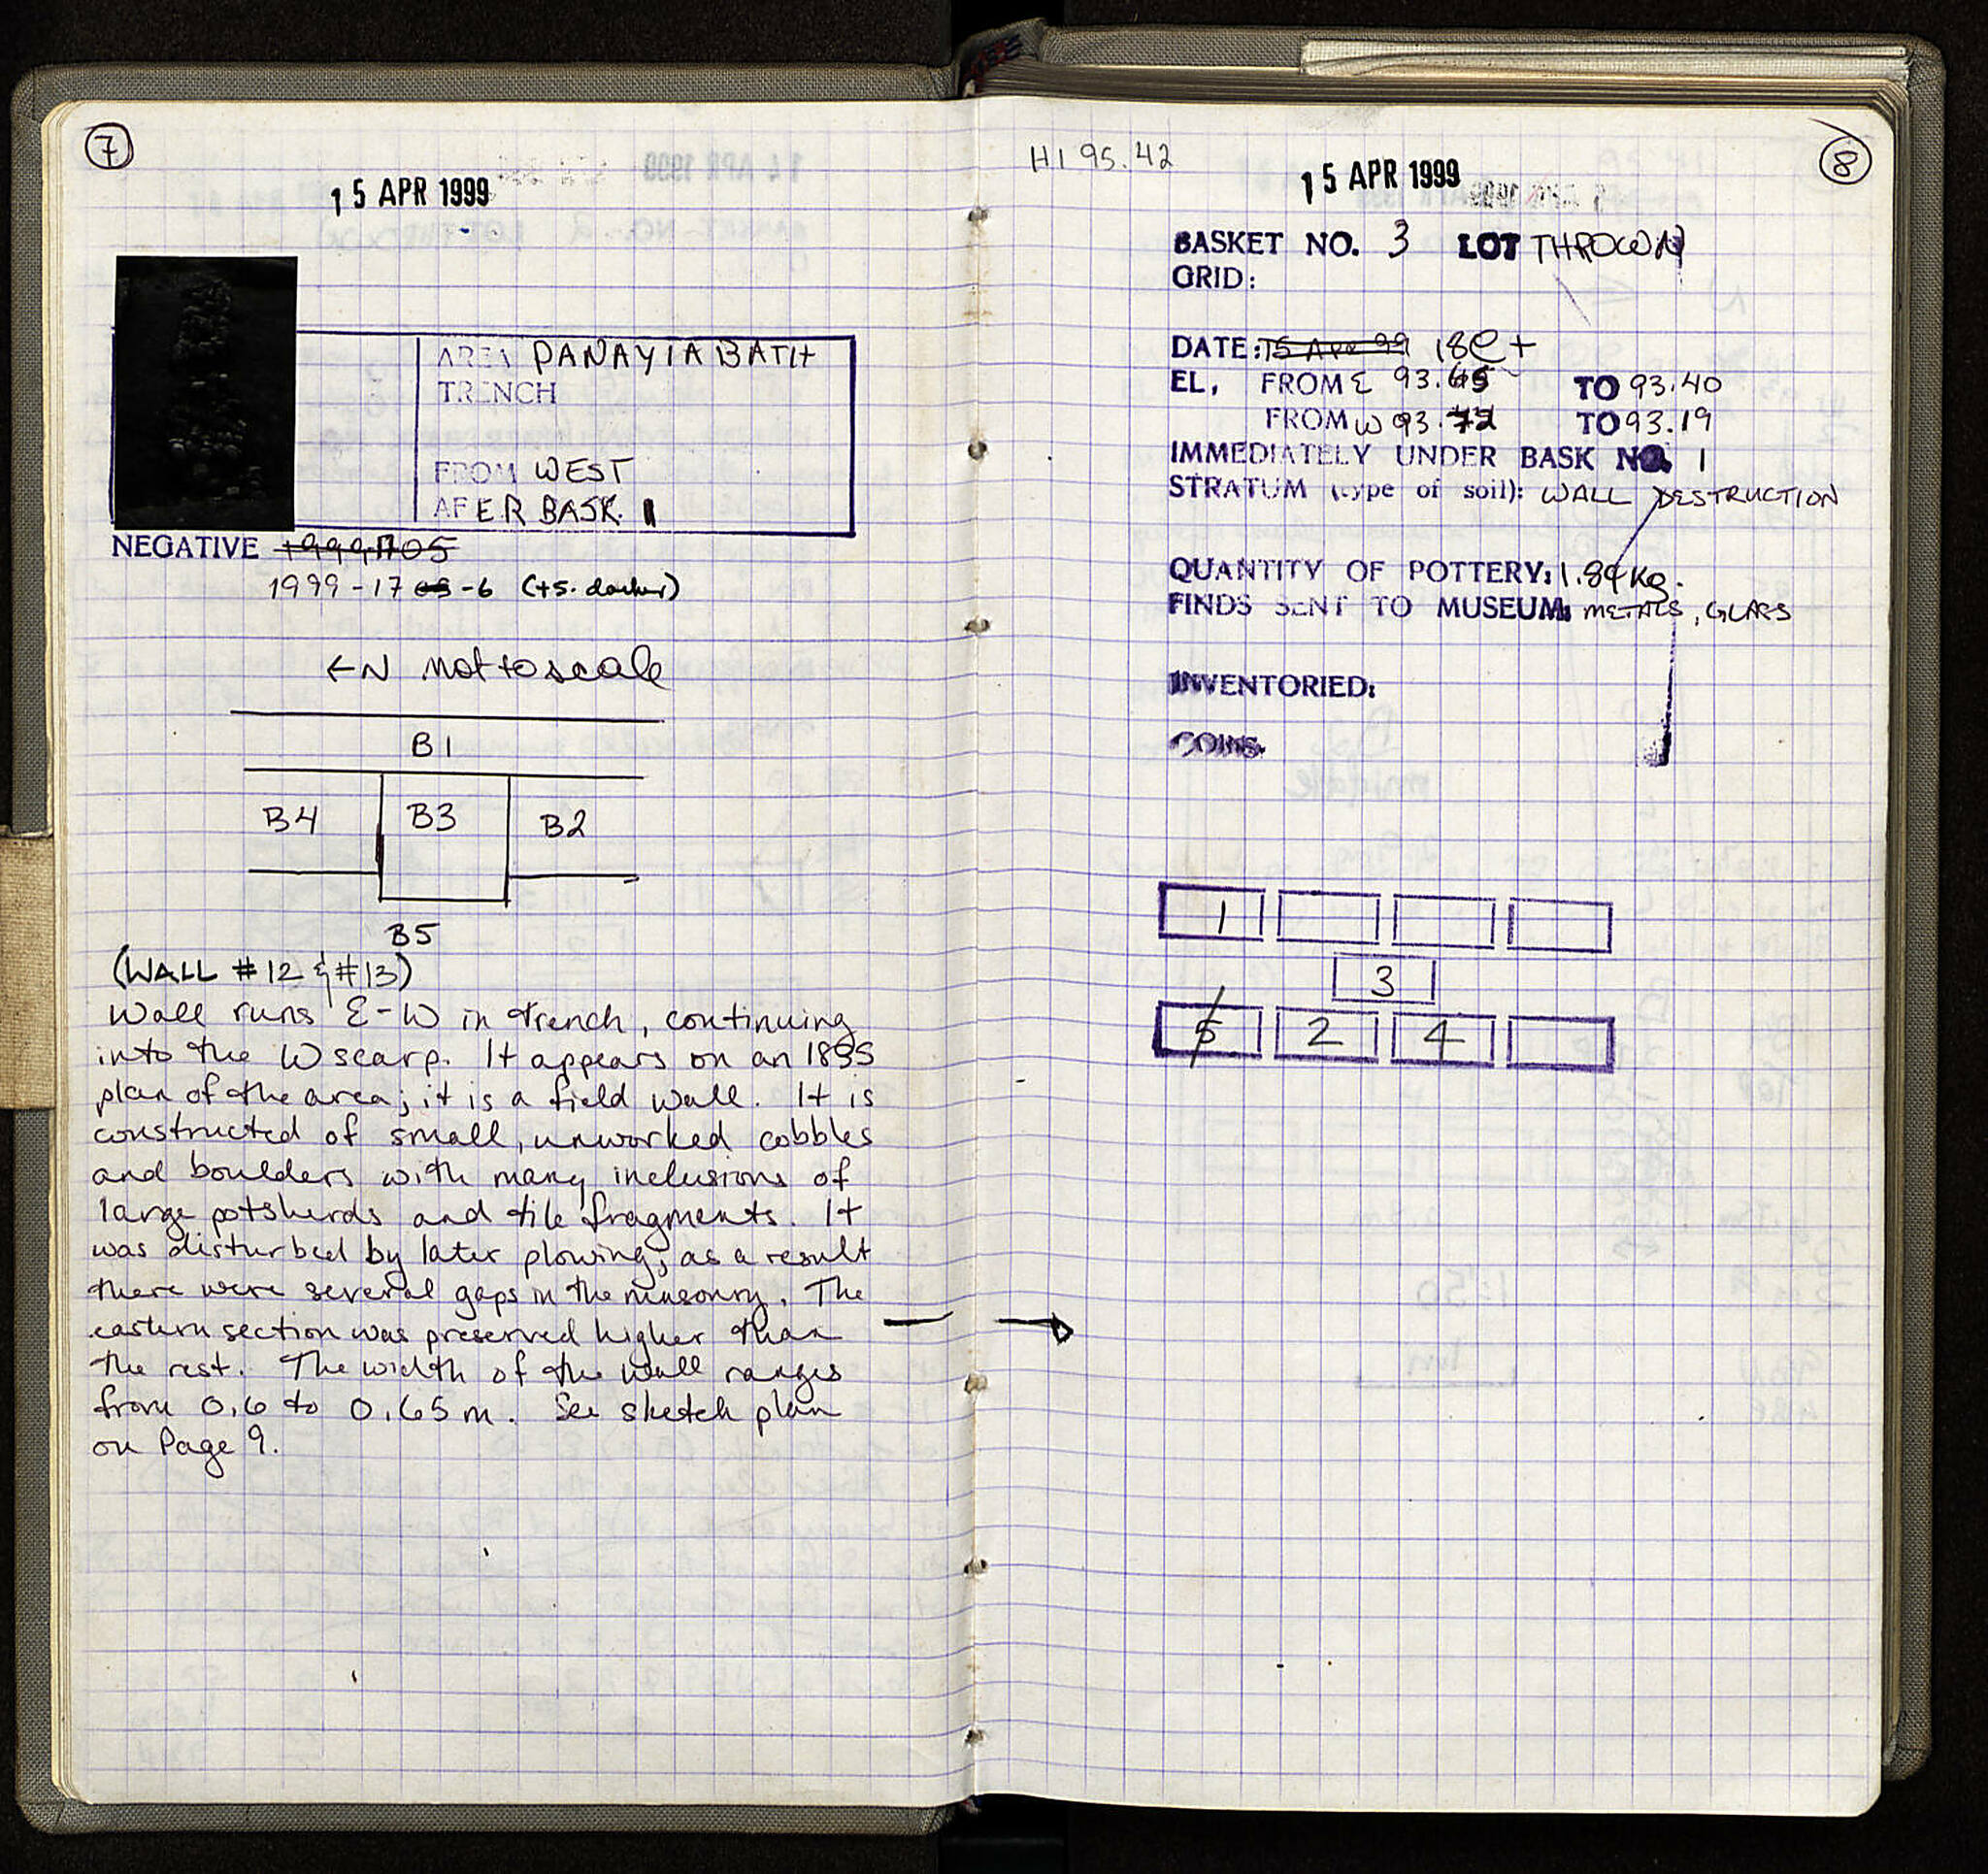 7
15 APR 1999
AREA PANAYIA BATH
TRENCH
FROM WEST
AFER BASK. 1
NEGATIVE 1999-1705
1999-17 05-6 (+5. darker)
←N not to scale
B1
B4 B3 B2
B5
(WALL #12 & #13)
Wall runs E-W in trench, continuing
into the W scarp. It appears on an 1835
plan of the area; it is a field wall. It is
constructed of small, unworked cobbles
and boulders with many inclusions of
large potsherds and tile fragments. It
was disturbed by later plowing; as a result
there were several gaps in the masonry. The
eastern section was preserved higher than
the rest. The width of the wall ranges
from 0.6 to 0.65 m. See sketch plan
on Page 9.
H1 95.42
15 APR 1999
8
BASKET NO. 3 LOT THROWN
GRID:
DATE: 15 Apr 99 18C+
EL, FROM E 93. TO 93.40
FROM W 93. TO 93.19
IMMEDIATELY UNDER BASK NO. 1
STRATUM (type of soil): WALL DESTRUCTION
QUANTITY OF POTTERY: 1.84 Kg.
FINDS SENT TO MUSEUM: METALS, GLASS
INVENTORIED:
COINS.
1
3
5 2 4